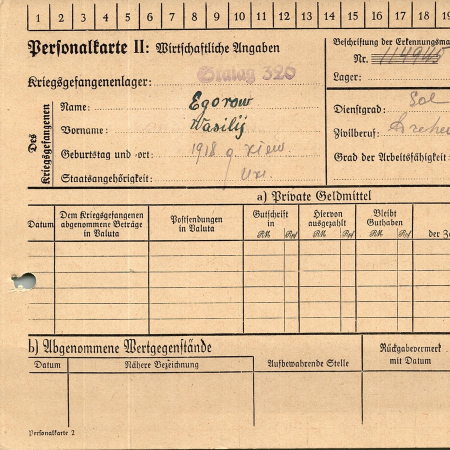 1 2 3 4 5 6 7 8 9 10 11 12 13 14 15 16 17 18 19
Personalkarte II: Wirtschaftliche Angaben
Beschriftung der Erkennungsma
Nr.
Kriegsgefangenenlager: Stalag 320
Lager:
Des Kriegsgefangenen
Name: Egorow
Vorname: Wasilij
Geburtstag und -ort: 1918 g. Kiew
Staatsangehörigkeit:
Dienstgrad: Sol
Zivilberuf: Drehe
Grad der Arbeitsfähigkeit:
a) Private Geldmittel
Datum
Dem Kriegsgefangenen abgenommene Beträge in Valuta
Postsendungen in Valuta
Gutschrift in RM Rpf
Hiervon ausgezahlt RM Rpf
Bleibt Guthaben RM Rpf
der Za
b) Abgenommene Wertgegenstände
Datum
Nähere Bezeichnung
Aufbewahrende Stelle
Rückgabevermerk mit Datum
Personalkarte 2